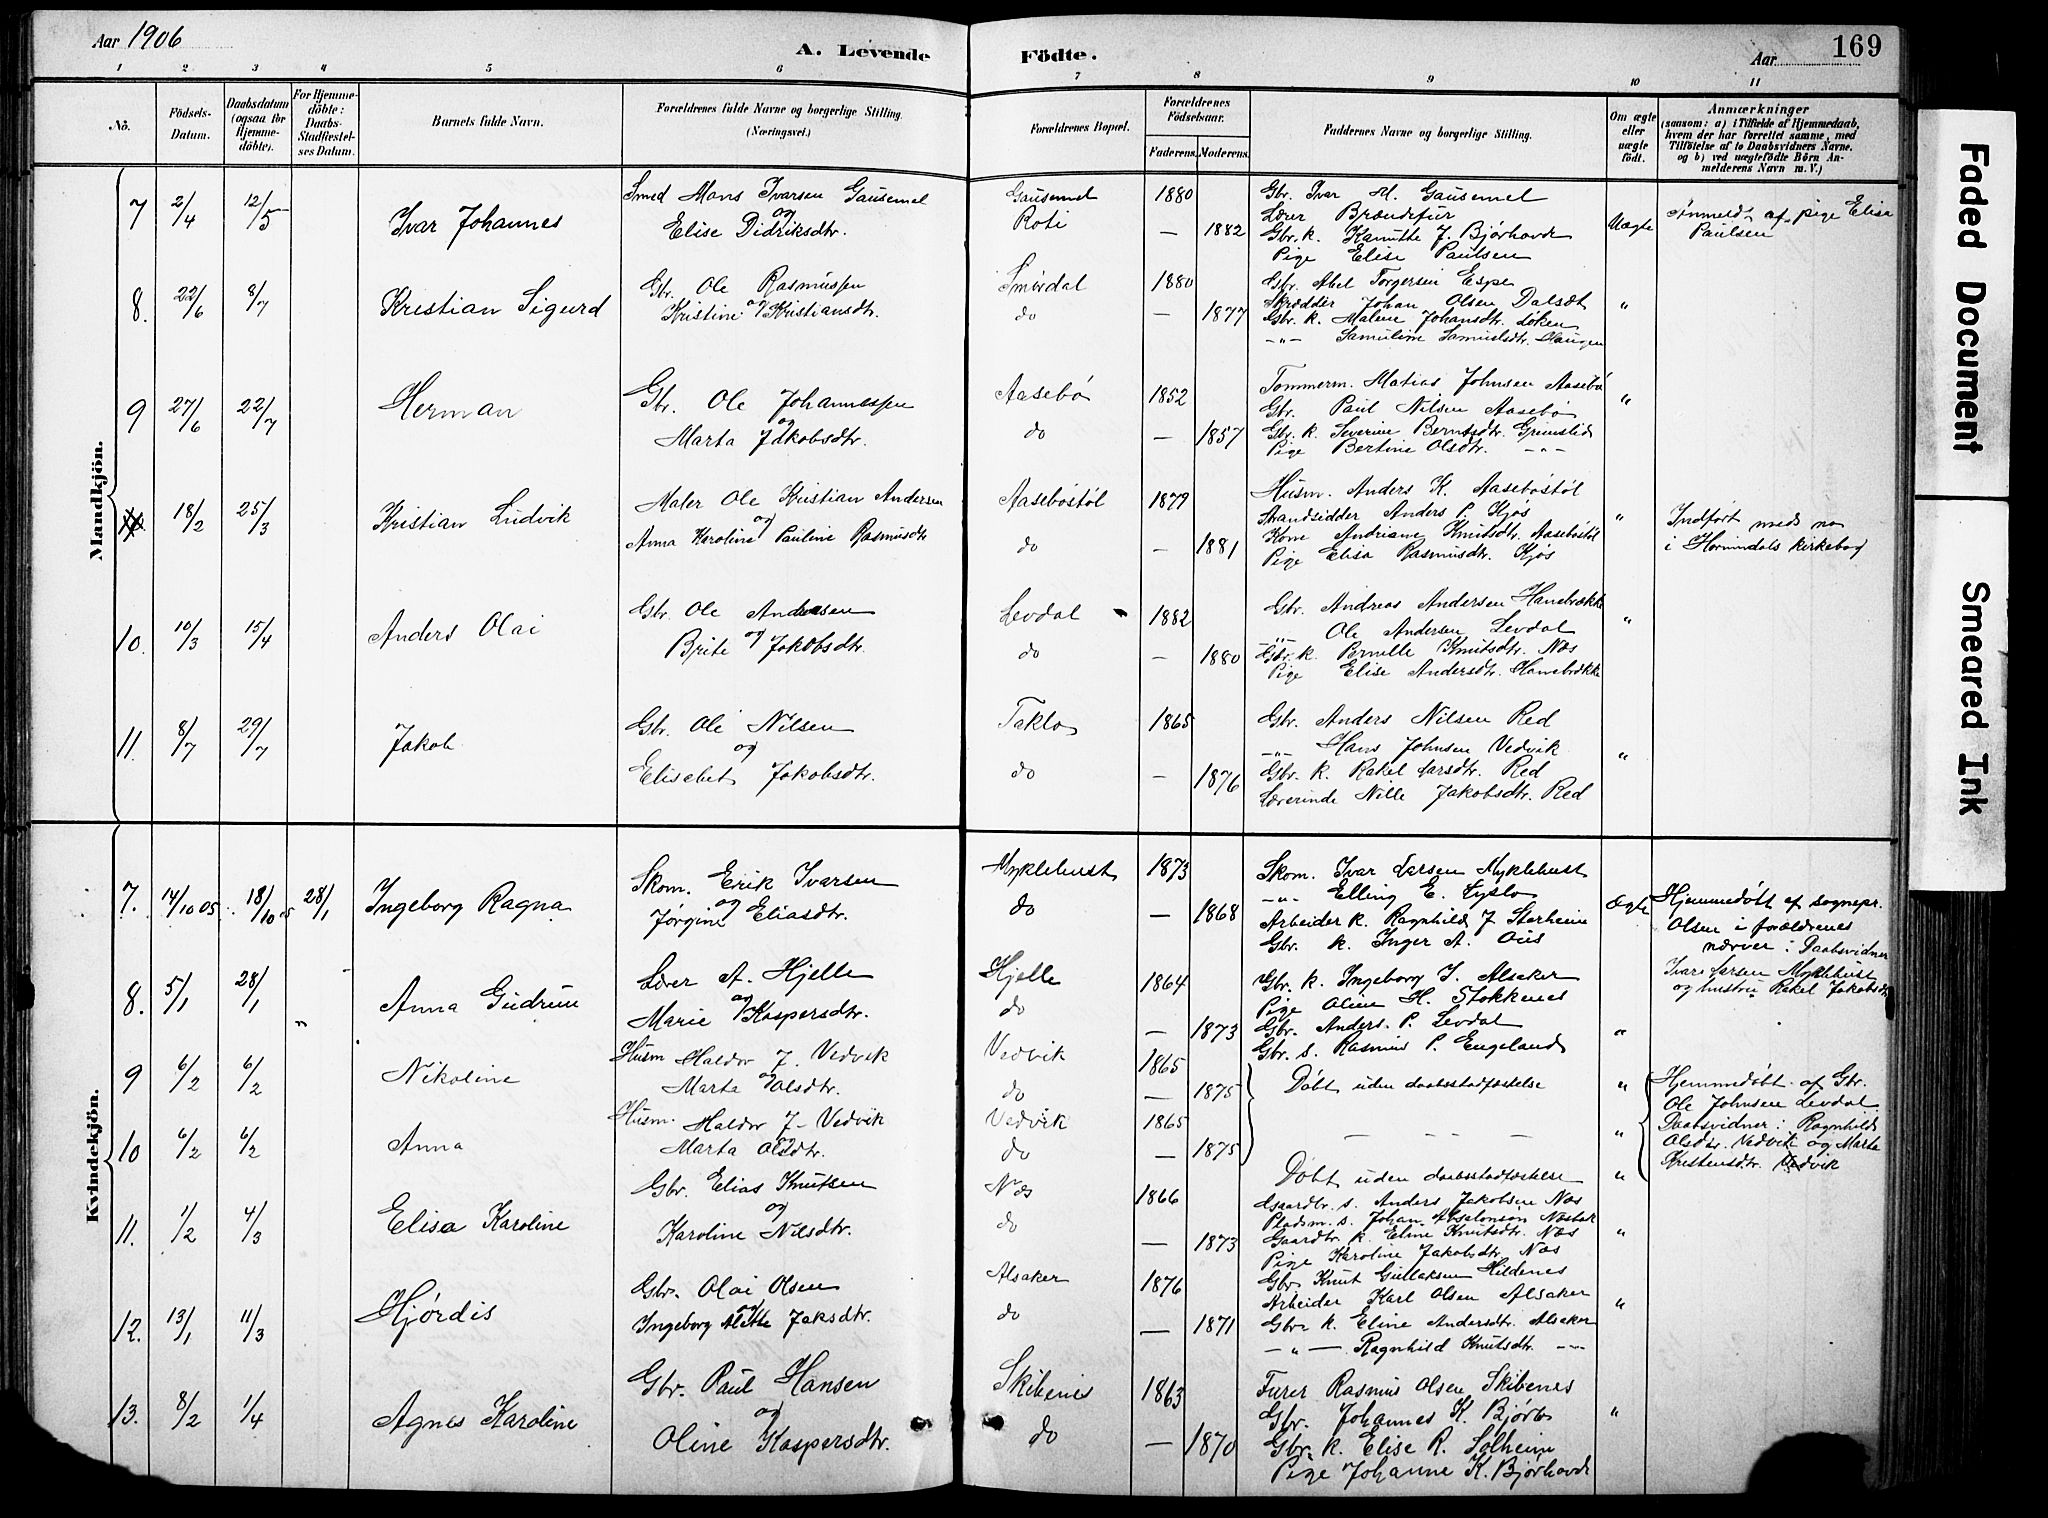 Aar 1906
A. Levende Födte.
Aar 169
1 2 3 4 5 6 7 8 9 10 11
No.
Födsels-Datum.
Daabsdatum (ogsaa for Hjemmedöbte).
For Hjemmedöbte: Daabs-Stadfæstelses Datum.
Barnets fulde Navn.
Forældrenes fulde Navne og borgerlige Stilling (Næringsvei.)
Forældrenes Bopæl.
Forældrenes Födselsaar.
Faderens. Moderens.
Faddernes Navne og borgerlige Stilling.
Om ægte eller uægte födt.
Anmærkninger
(saasom: a) i Tilfælde af Hjemmedaab, hvem der har forrettet samme, med Tilföielse af to Daabsvidners Navne, og b) ved uægtefödte Börn Anmelderens Navn m. V.)
Mandkjön.
7 2/4 12/5 Ivar Johannes
Smed Mons Ivarsen Gausemel
og
Elise Didriksdtr.
Gausemel 1880
Roti — 1882
Gbr. Ivar M. Gausemel
Lærer Brændefur
Gbr. k. Kanutte J. Bjørhovde
Pige Elise Paulsen
Uægte
Anmeldt af pige Elisa
Paulsen
8. 22/6 8/7 Kristian Sigurd
Gbr. Ole Rasmussen
og
Kristine Kristiansdtr.
Smördal 1880
do — 1877
Gbr. Abel Torgersen Espe
Skrædder Johan Olsen Dalsæt
Gbr. k. Malene Johansdtr. Løken
—"— Samuline Samuelsdtr. Haugen
"
9 27/6 22/7 Herman
Gbr. Ole Johannessen
og
Marta Jakobsdtr.
Aasebø 1852
do — 1857
Tømmerm. Matias Johnsen Aasebø
Gbr. Paul Nilsen Aasebø
Gbr. k. Severine Berntsdtr. Grimstid
Pige Bertine Olsdtr. —"—
"
18/2 25/3 Kristian Ludvik
Maler Ole Kristian Andersen
og
Anna Karoline Pauline Rasmusdtr
Aasebøstöl 1879
do — 1881
Husm. Anders K. Aasebøstöl
Strandsidder Anders P. Kjøs
Kone Andriane Knutsdtr. Aasebøstöl
Pige Elisa Rasmusdtr. Kjøs
"
Indført meds no
i Hornindals kirkebog
10. 10/3 15/4 Anders Olai
Gbr. Ole Andreasen
og
Brite Jakobsdtr.
Levdal 1882
do — 1880
Gbr. Andreas Andersen Hanebrække
—"— Ole Andersen Levdal
Gbr. k. Pernille Knutsdtr. Næs
Pige Elise Andersdtr. Hanebrække
"
11 8/7 29/7 Jakob
Gbr. Ole Nilsen
og
Elisebet Jakobsdtr.
Taklo 1865
do — 1876
Gbr. Anders Nilsen Red
—"— Hans Johnsen Vedvik
Gbr. k. Rakel Larsdtr. Red
Lærerinde Nille Jakobsdtr. Red
"
Kvindekjön.
7. 14/10 05 18/10 05 28/1 Ingeborg Ragna
Skom. Erik Ivarsen
og
Jørgine Eliasdtr.
Myklebust 1873
do — 1868
Skom. Ivar Larsen Myklebust
—"— Elling E. Lyslo
Arbeider k. Ragnhild J. Starheim
Gbr. k. Inger A. Øus
Ægte
Hjemmedøbt af sognepr.
Olsen i forældrenes
nærver: Daabsvidner
Ivar Larsen Myklebust
og hustru Rakel Jakobsdtr
8. 5/1 28/1 " Anna Gudrun
Lærer A. Hjelle
og
Marie Kaspersdtr.
Hjelle 1864
do — 1873
Gbr. k. Ingeborg J. Alsaker
Pige Oline H. Stokkenes
Gbr. Anders P. Levdal
Gbr. s. Rasmus P. Engeland
"
9 6/2 6/2 Nikoline
Husm Haldor J. Vedvik
og
Marta Olsdtr.
Vedvik 1865
do — 1875
Døbt uden daabsstadfæstelse
"
Hjemmedøbt af Gbr.
Ole Johnsen Levdal
Daabsvidner: Ragnhild
Olsdtr. Vedvik og Marta
Kristensdtr. Vedvik
10 6/2 6/2 Anna
Husm. Haldor J. Vedvik
Marta Olsdtr.
Vedvik 1865
do — 1875
— — — —
"
Døbt uden daabsstadfæstelse "
11. 1/2 4/3 Elisa Karoline
Gbr. Elias Knutsen
og
Karoline Nilsdtr.
Næs 1866
do — 1873
Gaardbr. s. Anders Jakobsen Næs
Pladsm. s. Johan Absalonsen Næsbak
Gaardbr. k. Eline Knutsdtr. Næs
Pige Karoline Jakobsdtr. Næs
"
12. 13/1 11/3 Hjørdis
Gbr. Olai Olsen
og
Ingeborg Alette Jaksdtr.
Alsaker 1876
do — 1871
Gbr. Knut Gullaksen Hildenes
Arbeider Karl Olsen Alsaker
Gbr. k. Eline Andersdtr. Alsaker
—"— Ragnhild Knutsdtr. —"—
"
13. 8/2 1/4 Agnes Karoline
Gbr. Paul Hansen
og
Oline Kaspersdtr.
Skibenes 1863
do — 1870
Furer Rasmus Olsen Skibenes
Gbr. Johannes K. Bjørlo
Gbr. k. Elise R. Solheim
Pige Johanne K. Bjørhovde
"
Faded Document
Smeared Ink